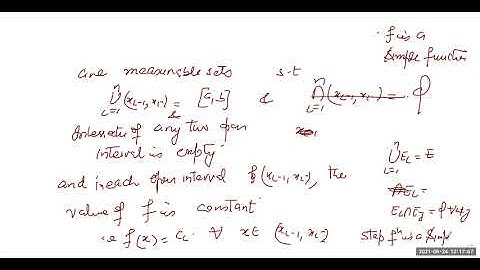 f is a
simple function
are measurable sets s.t
n ∪ i=1 (x_{i-1}, x_i) = [a, b] & n ∩ i=1 (x_{i-1}, x_i) = φ
&
Intersection of any two open
interval is empty
n ∪ i=1 E_i = E
and in each open interval (x_{i-1}, x_i), the
value of f is constant
E_i ∩ E_j = φ ∀ i≠j
i.e f(x) = c_i ∀ x ∈ (x_{i-1}, x_i)
step fn is a simple
2021-05-24 12:17:57